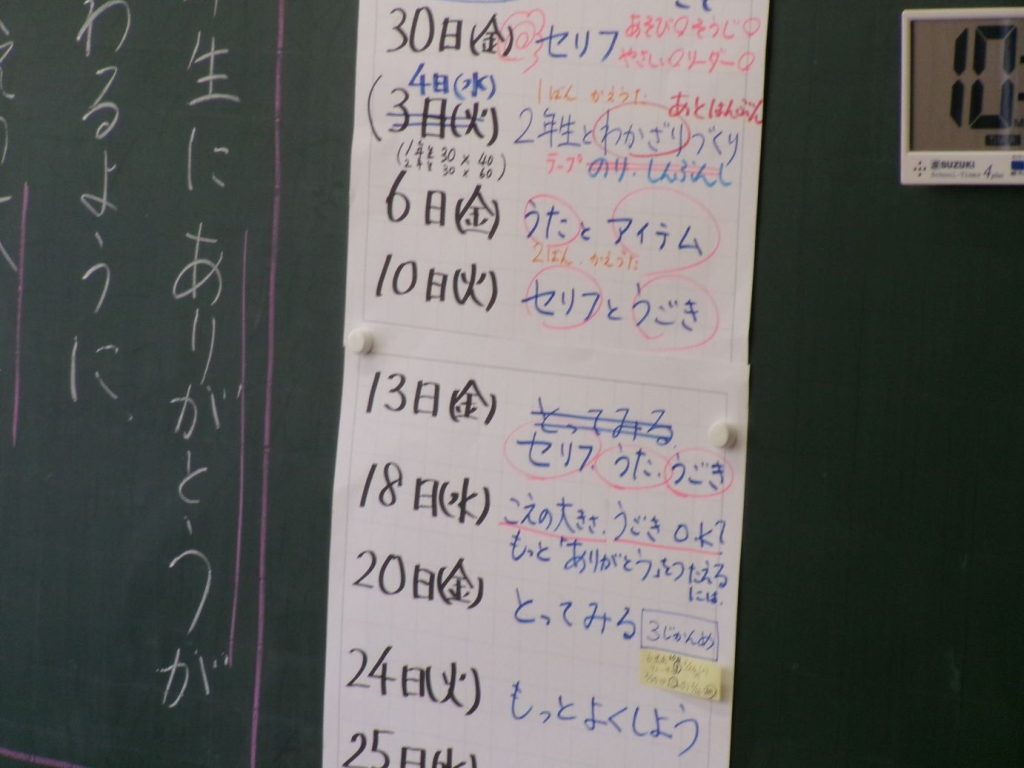 生に ありがとうが
わるように
30日(金) セリフ
あそび そうじ
やさしい リーダー
4日(水)
1ばん かえうた
あとはんぶん
3日(火) 2年生とわかざりづくり
(1年生 30×40
2年生 30×60)
テープ のり しんぶんし
6日(金) うたとアイテム
2ばん かえうた
10日(火) セリフとうごき
13日(金) とってみる
セリフ. うた. うごき
18日(水) こえの大きさ. うごき OK?
もっと「ありがとう」をつたえる
には.
20日(金) とってみる 3じかんめ
24日(火) もっとよくしよう
25日(水)
10:
SUZUKI